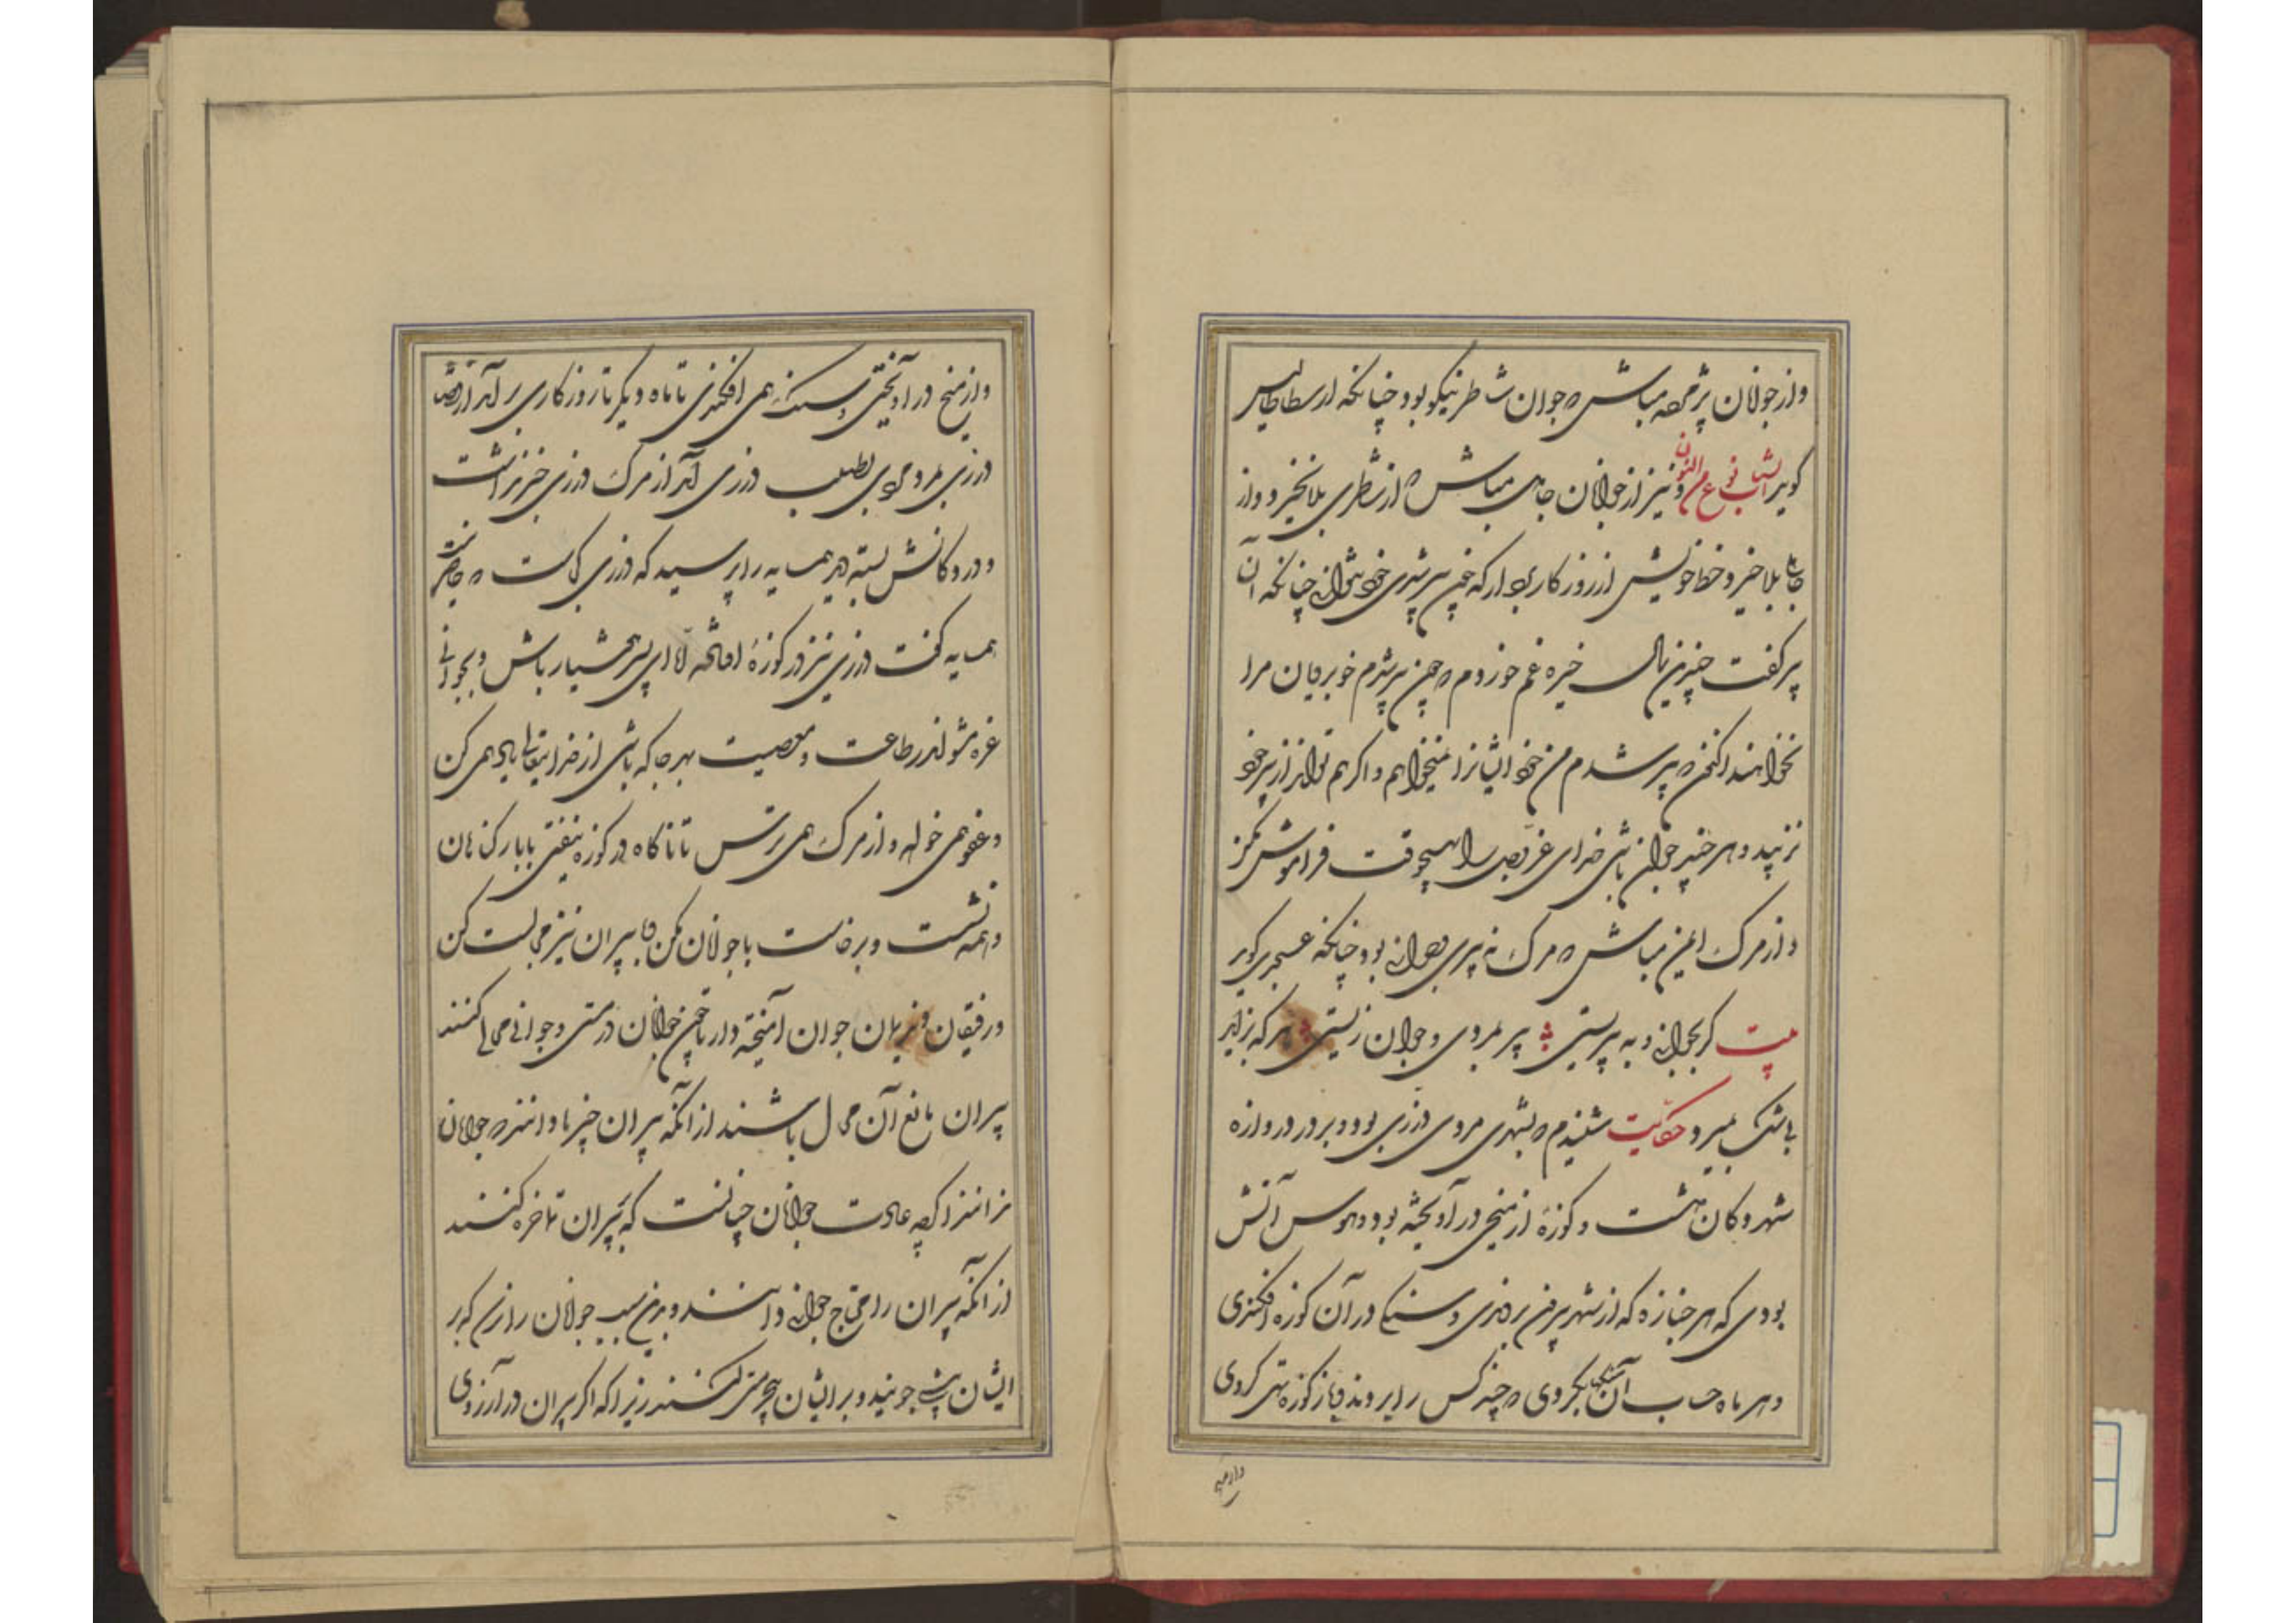 و از جوانان پژمرده مباش که جوان شاطر نیکو بود چنانکه ارسطاطالیس
کوید الشباب نوع من الجنون و نیز از جوانان جاهل مباش که از شاطری بلا نخیزد و از
جاهلی بلا خیزد و حظ خویش از روزکار بردار که چون پیر شدی خود نتوانی چنانکه آن
پیر کفت چندین سال خیره غم خوردم که چون پیر شوم خوبرویان مرا
نخواهند اکنون که پیر شدم من خود ایشانرا نمیخواهم و اکر هم تواند از پیر خود
نزیبد و هر چند جوان باشی خدای عز و جل را بهیچوقت فراموش مکن
و از مرک ایمن مباش که مرک نه بپیری و جوانی بود چنانکه عسجدی کوید
بیت کر بجوانی و به پیریستی پیر بمردی و جوان زیستی هر که بزاید
بی شک بمیرد حکایت شنیدم که بشهری مردی درزی بود و بر در دروازه
شهر دکان داشت و کوزهٔ از میخی در آویخته بود و هوس آنش
بودی که هر جنازه که از شهر بیرون بردندی وی سنکی در آن کوزه افکندی
و هر ماه حساب آن سنکها بکردی که چند کس را بردند و باز کوزه تهی کردی
و از میخ
و از میخ در آویختی و سنک همی افکندی تا ماه دیکر تا روزکاری بر آمد از قضا
درزی بمرد مردی بطلب درزی آمد از مرک درزی خبر نداشت
و در دکانش بسته دید همسایه را پرسید که درزی کجاست که حاضر نیست
همسایه کفت درزی نیز در کوزهٔ افتاد اما ای پسر هشیار باش و بجوانی
غره مشو اندر طاعت و معصیت بهر جا که باشی از خدایتعالی یاد همی کن
و عفو همی خواه و از مرک همی ترس تا ناکاه در کوزه نیفتی با بار کناهان
و همه نشست و برخاست با جوانان مکن با پیران نیز مجالست کن
و رفیقان و ندیمان جوان آمیخته دار تا چون جوانان در مستی و جوانی محالی کنند
پیران مانع آن محال باشند از آنکه پیران چیزها دانند که جوانان
ندانند اکرچه عادت جوانان چنانست که بر پیران تماخره کنند
از آنکه پیران را محتاج جوانی دانند و بدین سبب جوانان را نرسد که بر
ایشان پیشی جویند و بر ایشان بیحرمتی کنند زیرا که اکر پیران در آرزوی